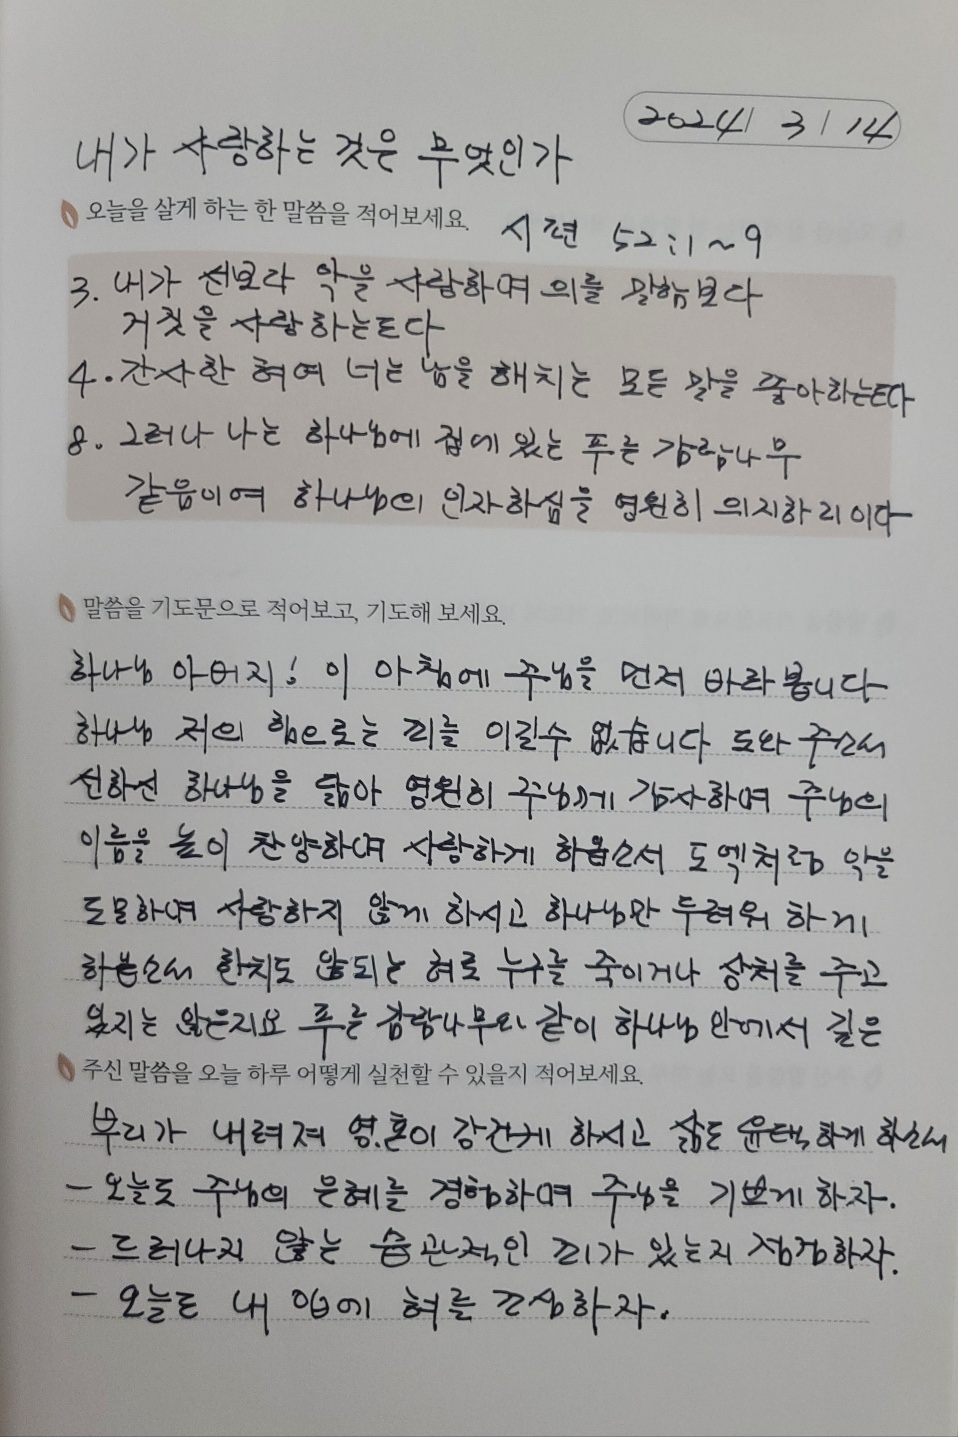 2024 / 3 / 14
내가 사랑하는 것은 무엇인가
오늘을 살게 하는 한 말씀을 적어보세요.
시편 52:1~9
3. 내가 선보다 악을 사랑하며 의를 말함보다
거짓을 사랑하는도다
4. 간사한 혀여 너는 남을 해치는 모든 말을 좋아하는도다
8. 그러나 나는 하나님에 집에 있는 푸른 감람나무
같음이여 하나님의 인자하심을 영원히 의지하리이다
말씀을 기도문으로 적어보고, 기도해 보세요.
하나님 아버지! 이 아침에 주님을 먼저 바라봅니다
하나님 저의 힘으로는 죄를 이길수 없습니다 도와 주소서
선하신 하나님을 닮아 영원히 주님께 감사하며 주님의
이름을 높이 찬양하며 사랑하게 하옵소서 도엑처럼 악을
도모하며 사랑하지 않게 하시고 하나님만 두려워 하게
하옵소서 한치도 않되는 혀로 누구를 죽이거나 상처를 주고
있지는 않은지요 푸른 감람나무와 같이 하나님 안에서 깊은
주신 말씀을 오늘 하루 어떻게 실천할 수 있을지 적어보세요.
뿌리가 내려져 영.혼이 강건케 하시고 삶도 윤택하게 하소서
- 오늘도 주님의 은혜를 경험하며 주님을 기쁘게 하자.
- 드러나지 않는 습관적인 죄가 있는지 점검하자.
- 오늘도 내 입에 혀를 조심하자.